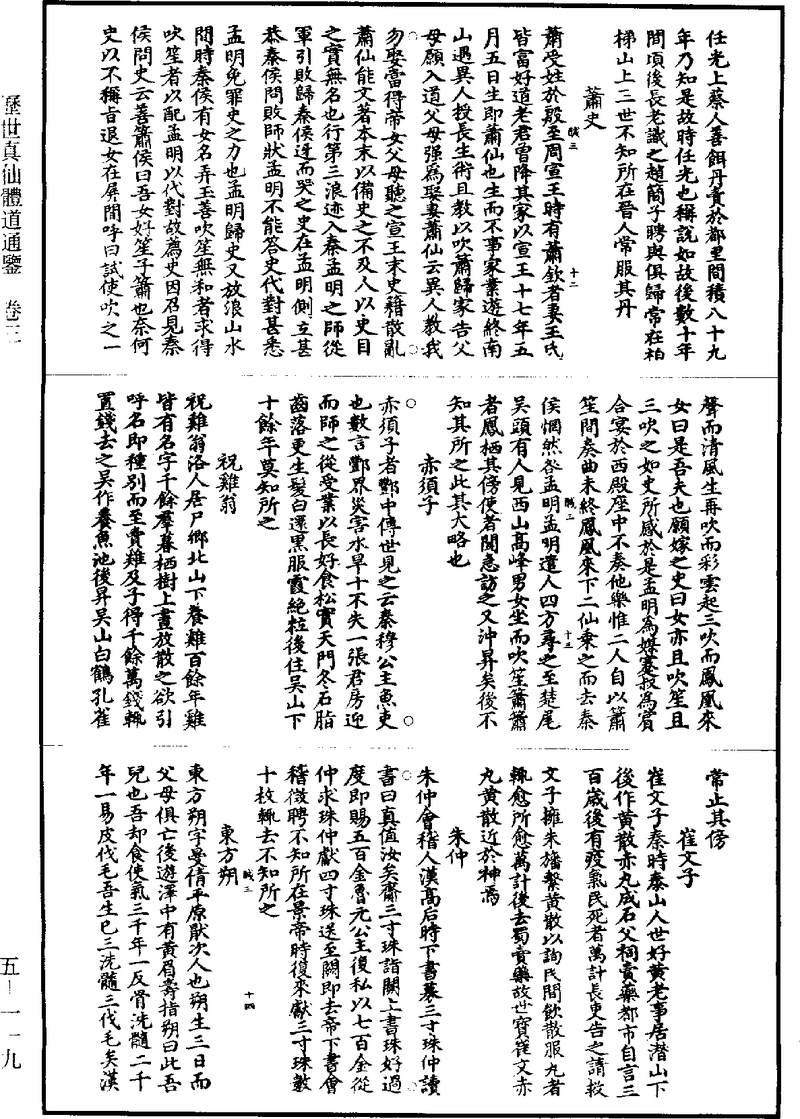 任光上蔡人善餌丹賣於都里間積八十九
年乃知是故時任光也稱說如故後數十年
間項後長老識之趙簡子聘與俱歸常在柏
梯山上三世不知所在晉人常服其丹
蕭史
蕭受姓於殷至周宣王時有蕭欽者妻王氏
皆富好道老君曾降其家以宣王十七年五
月五日生即蕭仙也生而不事家業遊終南
山遇異人授長生術且教以吹簫歸家告父
母願入道父母强為娶妻蕭仙云異人教我
勿娶當得帝女父母聽之宣王末史籍散亂
蕭仙能文著本末以備史之不及人以史目
之實無名也行第三浪迹入秦孟明之師從
軍引敗歸秦侯迓而哭之史在孟明側立甚
恭秦侯問敗師狀孟明不能答史代對甚悉
孟明免罪史之力也孟明歸史又放浪山水
間時秦侯有女名弄玉善吹笙無和者求得
吹笙者以配孟明以代對故薦史因召見秦
侯問史云善簫侯曰吾女好笙子簫也奈何
史以不稱旨退女在屏間呼曰試使吹之一
聲而清風生再吹而彩雲起三吹而鳳凰來
女曰是吾夫也願嫁之史曰女亦且吹笙且
三吹之如史所感於是孟明為媒蹇叔為賓
合宴於西殿座中不奏他樂惟二人自以簫
笙間奏曲未終鳳凰來下二仙乘之而去秦
侯惘然咎孟明孟明遣人四方尋之至楚尾
吳頭有人見西山高峰男女坐而吹笙簫簫
者鳳栖其傍使者聞急訪之又沖昇矣後不
知其所之此其大略也
赤須子
赤須子者酆中傳世見之云秦穆公主魚吏
也數言酆界災害水旱十不失一張君房迎
而師之從受業以長好食松實天門冬石脂
齒落更生髮白還黑服霞絶粒後往吳山下
十餘年莫知所之
祝雞翁
祝雞翁洛人居尸鄉北山下養雞百餘年雞
皆有名字千餘羣暮栖樹上晝放散之欲引
呼名即種別而至賣雞及子得千餘萬錢輒
置錢去之吳作養魚池後昇吳山白鶴孔雀
常止其傍
崔文子
崔文子秦時泰山人世好黄老事居潛山下
後作黄散赤丸成石父祠賣藥都市自言三
百歲後有疫氣民死者萬計長吏告之請救
文子擁朱旛繫黄散以詢民間飲散服丸者
輒愈所愈萬計後去蜀賣藥故世寶崔文赤
丸黄散近於神焉
朱仲
朱仲會稽人漢高后時下書募三寸珠仲讀
書曰真值汝矣齎三寸珠詣闕上書珠好過
度即賜五百金魯元公主復私以七百金從
仲求珠仲獻四寸珠送至闕即去帝下書會
稽徵聘不知所在景帝時復來獻三寸珠數
十枚輒去不知所之
東方朔
東方朔字曼倩平原厭次人也朔生三日而
父母俱亡後遊澤中有黄眉壽指朔曰此吾
兒也吾却食使氣三千年一反骨洗髓二千
年一易皮伐毛吾生巳三洗髓三伐毛矣漢
賊三
十二
賊三
十三
賊三
十四
歷世真仙體道通鑑 卷三
五—一一九